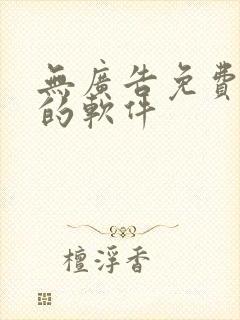 無廣告免費
的軟件
檀浮香